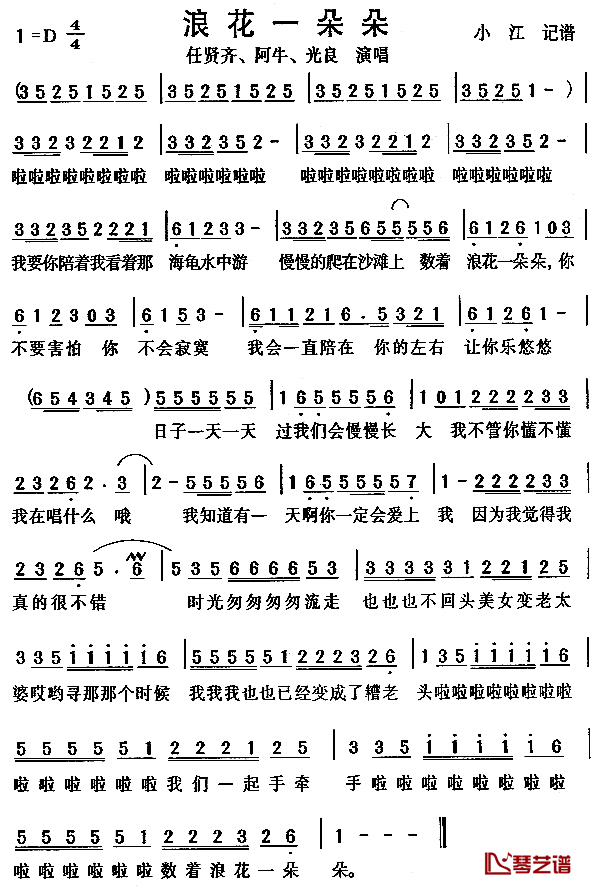 浪花一朵朵
1=D 4/4
小江 记谱
任贤齐、阿牛、光良 演唱
(35251525 | 35251525 | 35251525 | 35251-)
33232212 | 332352- | 33232212 | 332352-
啦啦啦啦啦啦啦啦 啦啦啦啦啦啦 啦啦啦啦啦啦啦啦 啦啦啦啦啦啦
332352221 | 61233- | 3323565 5556 | 6126103
我要你陪着我看着那 海龟水中游 慢慢的爬在沙滩上 数着 浪花一朵朵,你
612303 | 6153- | 6111216.5321 | 61261-
不要害怕 你 不会寂寞 我会一直陪在 你的左右 让你乐悠悠
(654345) 555555 | 1655556 | 101222233
日子一天一天 过我们会慢慢长 大 我不管你懂不懂
23262.3 | 2-55556 | 165555557 | 1-222233
我在唱什么 哦 我知道有一 天啊你一定会爱上 我 因为我觉得我
23265.6 | 535666653 | 33333122125
真的很不错 时光匆匆匆匆流走 也也也不回头美女变老太
3351111116 | 55555122232 6 | 1351111116
婆哎哟寻那那个时候 我我我也也已经变成了糟老 头啦啦啦啦啦啦啦啦
55555122212 5 | 3335111116
啦啦啦啦啦啦我们一起手牵 手啦啦啦啦啦啦啦啦
55555122232 6 | 1---‖
啦啦啦啦啦啦数着浪花一朵 朵。
琴艺谱